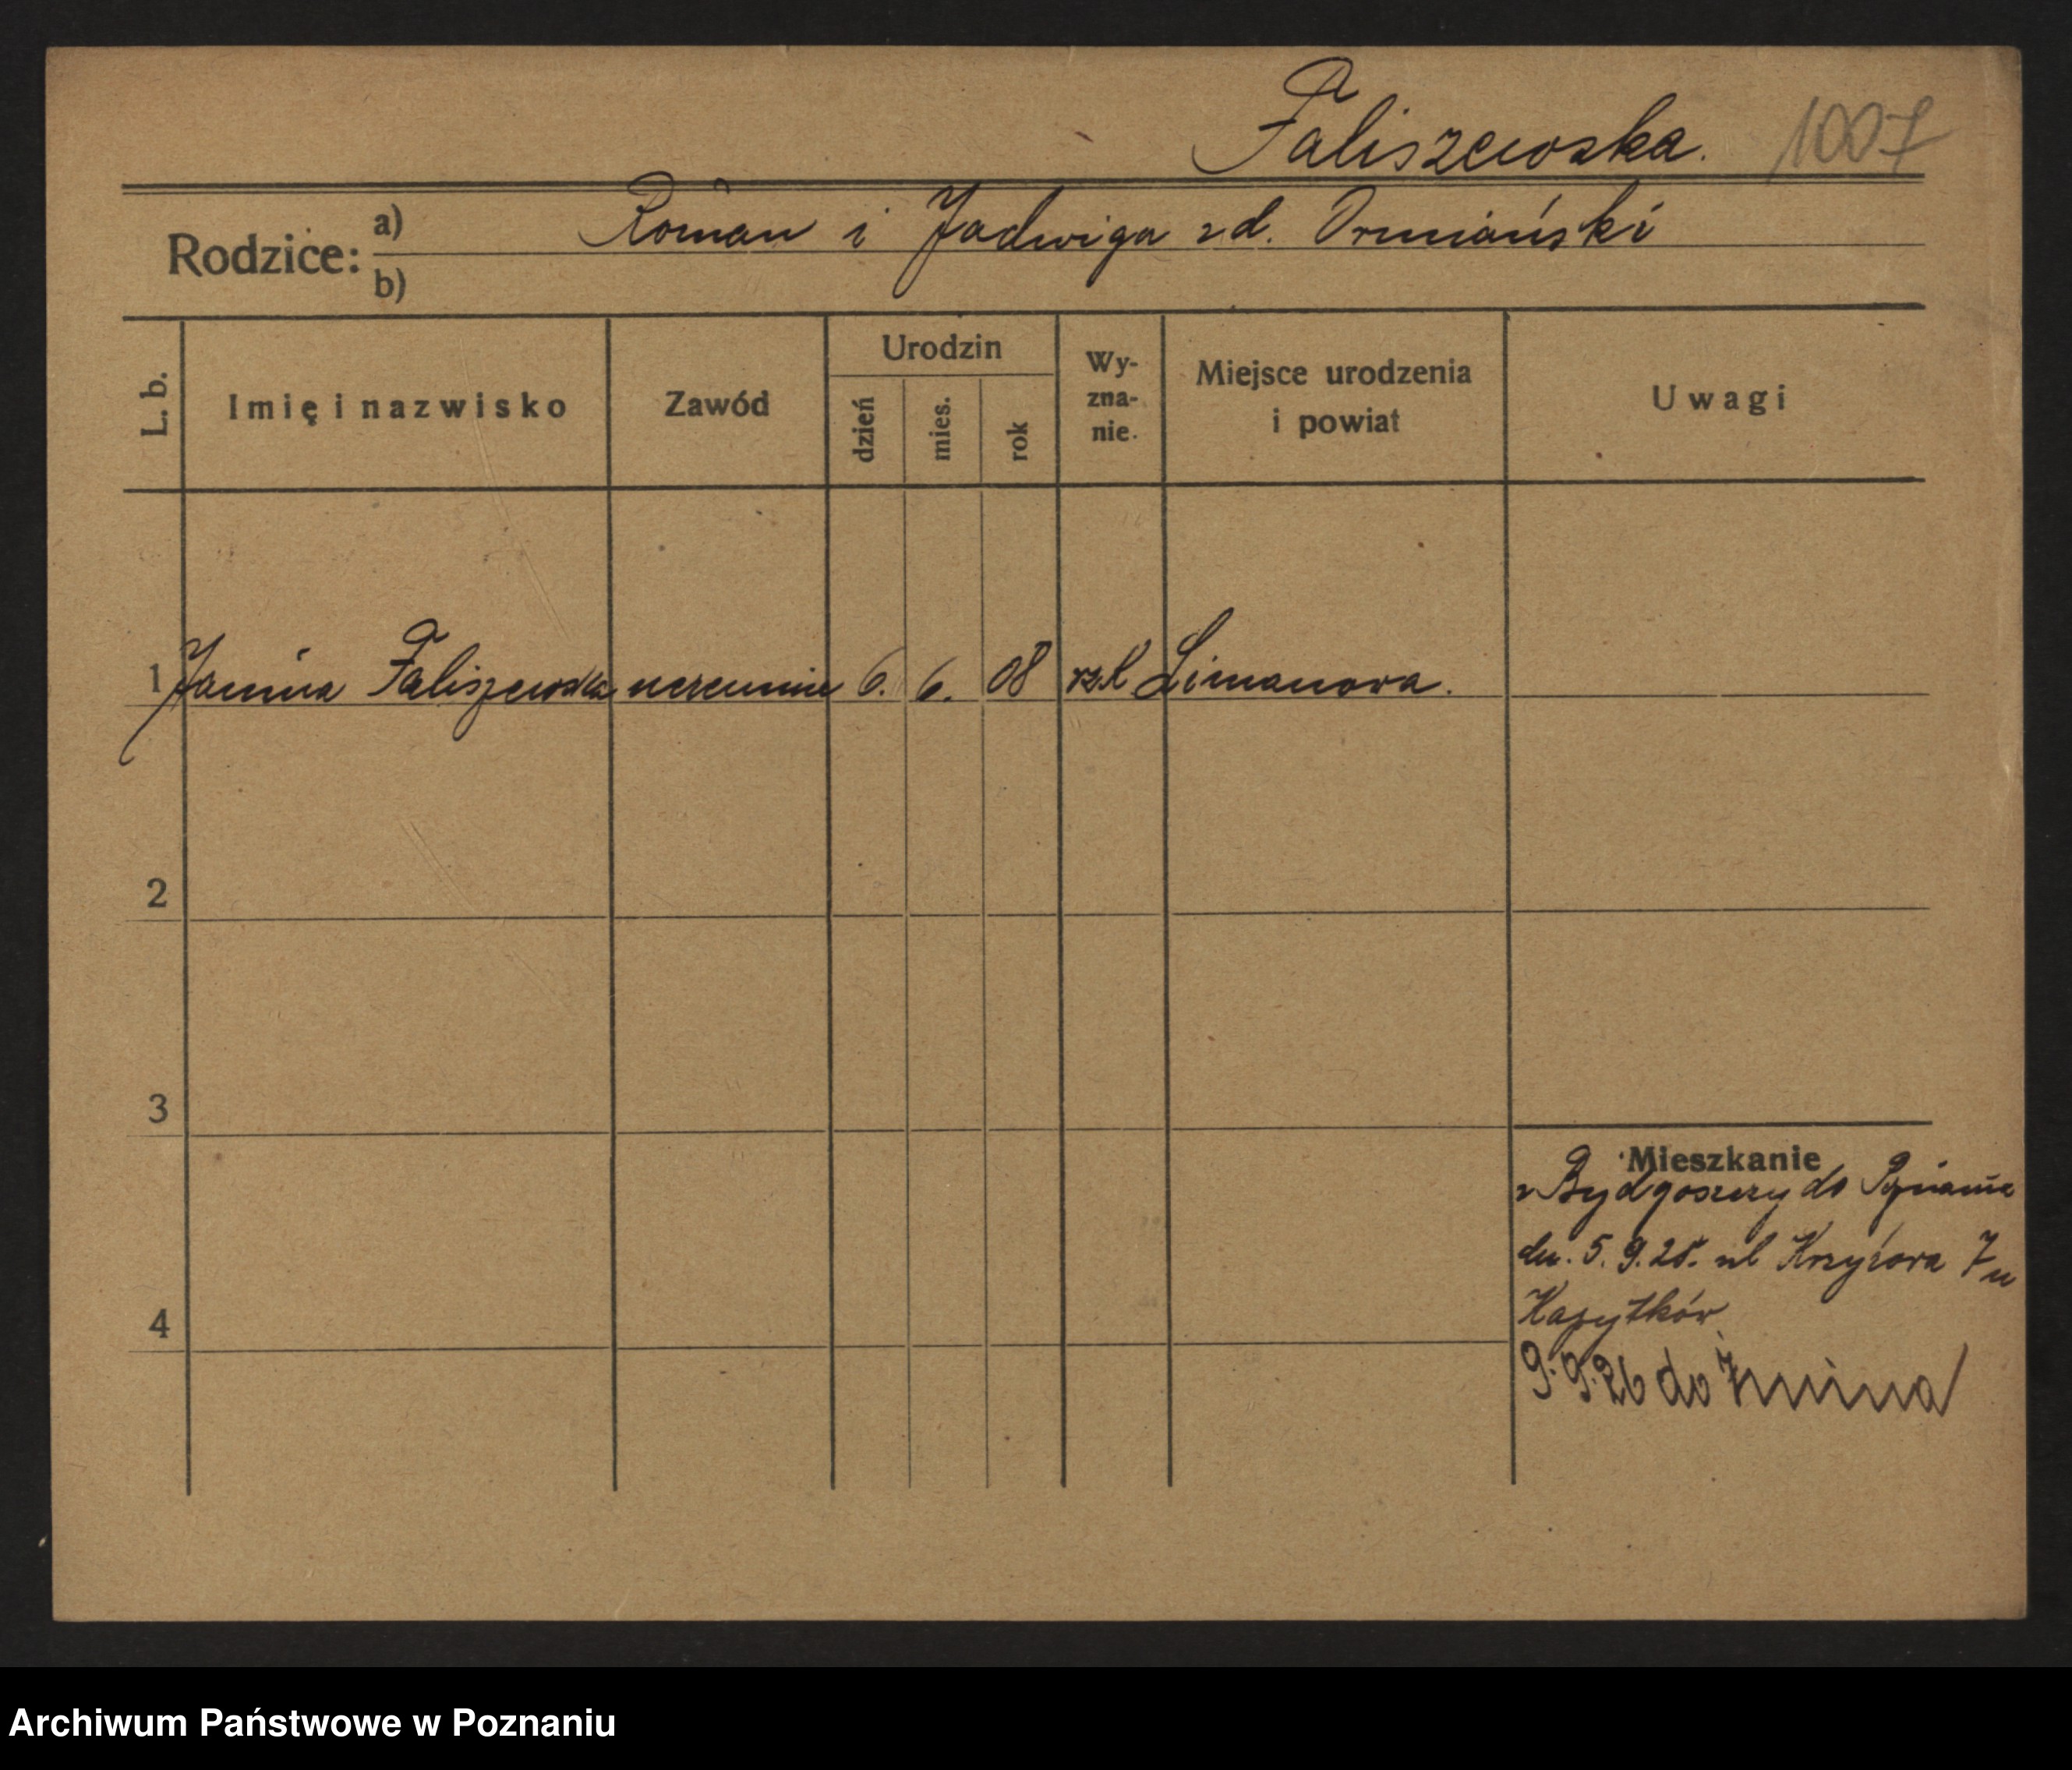 Faliszewska. 1007
Rodzice: a) Roman i Jadwiga zd. Ormiański
b)
L. b. Imię i nazwisko Zawód Urodzin dzień mies. rok Wy-zna-nie. Miejsce urodzenia i powiat Uwagi
1 Janina Faliszewska uczennica 6. 6. 08 rzk Limanowa.
2
3
Mieszkanie
z Bydgoszczy do Poznania
dn. 5. 9. 25. ul Krzyżowa 7 u
4
9.9.26 do Żnina
Archiwum Państwowe w Poznaniu